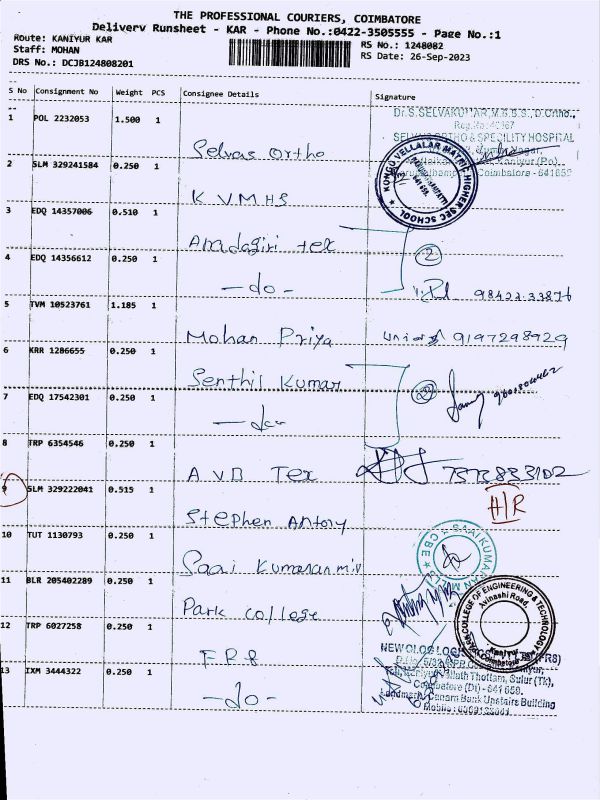 THE PROFESSIONAL COURIERS, COIMBATORE
Delivery Runsheet - KAR - Phone No.:0422-3505555 - Page No.:1
Route: KANIYUR KAR
RS No.: 1248082
Staff: MOHAN
RS Date: 26-Sep-2023
DRS No.: DCJB124808201
S No Consignment No Weight PCS Consignee Details Signature
1 POL 2232053 1.500 1
Dr.S.SELVAKUMAR,M.B.B.S., D.Ortho.,
SELVAS ORTHO & SPECILITY HOSPITAL
Coimbatore - 641659
Selvas Ortho
2 SLM 329241584 0.250 1
KONGO VELLALAR MATRIC. HIGHER SEC SCHOOL
K.V.M.HS
3 EDQ 14357006 0.510 1
Anadagiri tex
4 EDQ 14356612 0.250 1
2
-do-
98422 33876
5 TVM 10523761 1.185 1
Mohan Priya
9197298929
6 KRR 1286655 0.250 1
Senthil Kumar
7 EDQ 17542301 0.250 1
-do-
8 TRP 6354546 0.250 1
A.V.B Tex
7373883102
9 SLM 329222041 0.515 1
H/R
Stephen Antony
10 TUT 1130793 0.250 1
SAAI KUMARAN MILL CBE
Saai Kumaran mill
11 BLR 205402289 0.250 1
PARK COLLEGE OF ENGINEERING & TECHNOLOGY
Avinashi Road,
Kaniyur
Coimbatore
Park college
12 TRP 6027258 0.250 1
(FR8)
FR8
Thottam, Sulur (Tk),
Coimbatore (Dt) - 641 659.
13 IXM 3444322 0.250 1
Landmark: Canara Bank Upstairs Building
-do-